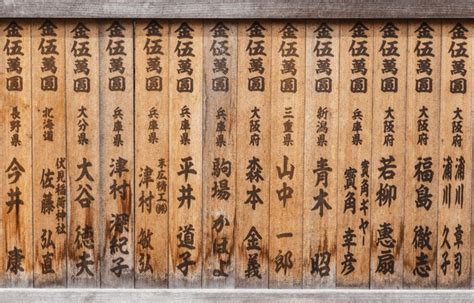 金伍萬圓 浦川 浦川
金伍萬圓 大阪府 福島 徹志
金伍萬圓 大阪府 若柳 惠扇
金伍萬圓 大阪府 寳角ギヤー 寳角 幸彦
金伍萬圓 新潟県 青木 昭
金伍萬圓 三重県 山中 一郎
金伍萬圓 大阪府 森本 金義
金伍萬圓 兵庫県 駒場 かほよ
金伍萬圓 兵庫県 平井 道子
金伍萬圓 兵庫県 末広精工㈱ 津村 敏弘
金伍萬圓 兵庫県 津村 紀子
金伍萬圓 大分県 大谷 徳夫
金伍萬圓 北海道 伏見稲荷神社 佐藤 弘直
金伍萬圓 長野県 今井 康